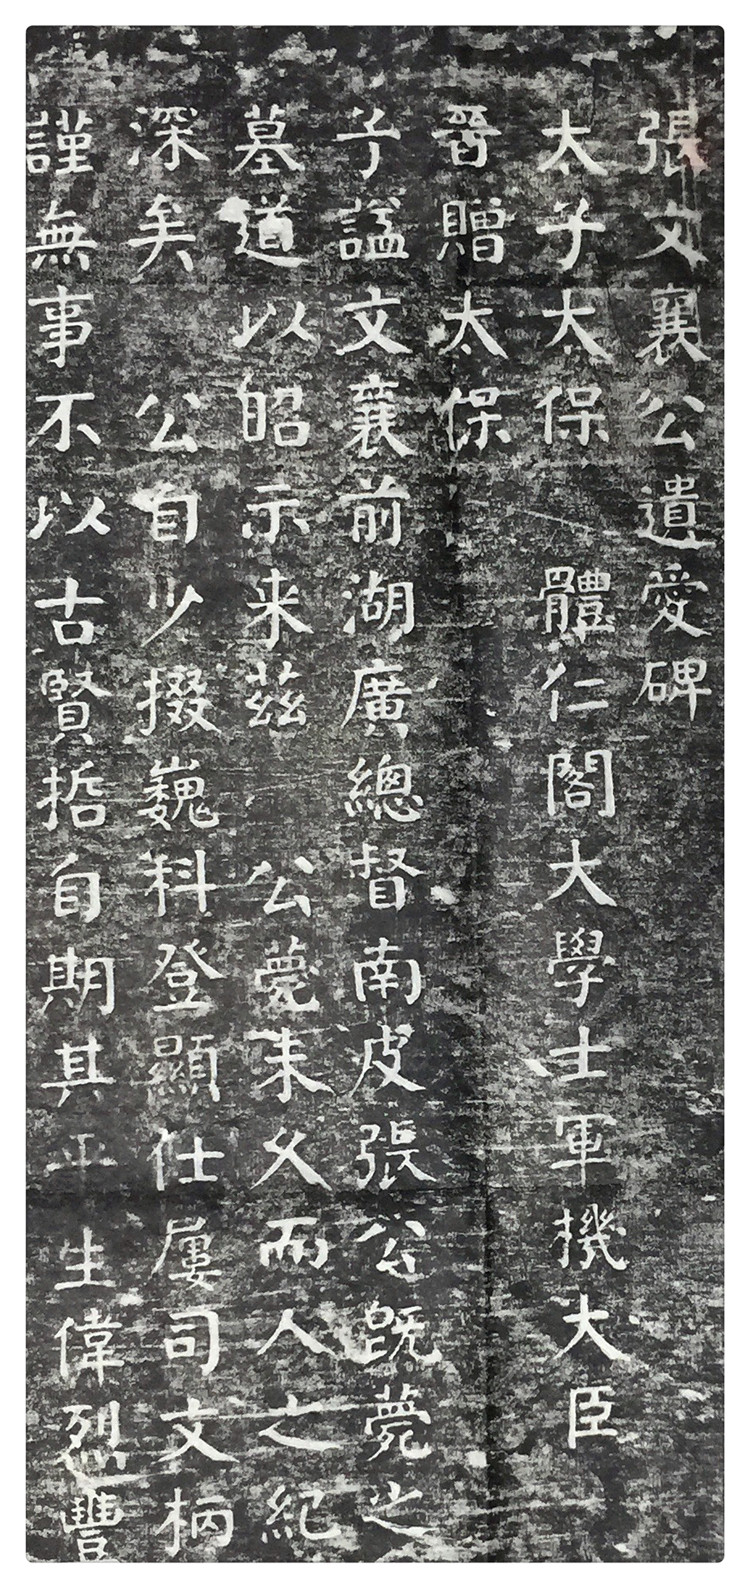 張文襄公遺愛碑
太子太保 體仁閣大學士軍機大臣
晉贈太保
予諡文襄前湖廣總督南皮張公既薨之
墓道以昭示来茲 公薨未久而人之紀
深矣 公自少掇巍科登顯仕屢司文柄
謹無事不以古賢哲自期其平生偉烈豐